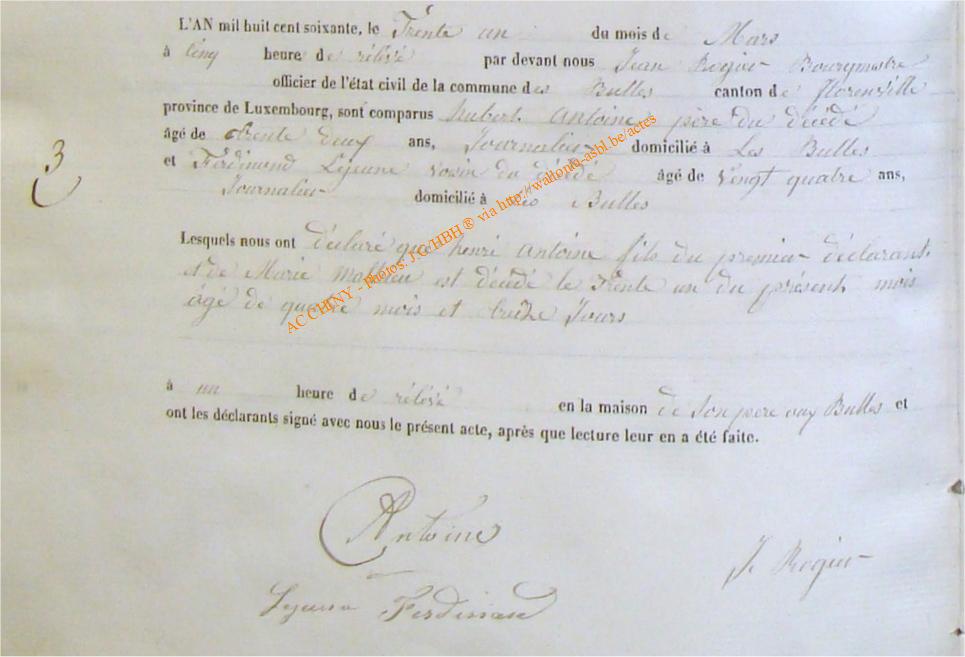 L'AN mil huit cent soixante, le Trente un du mois de Mars
à cinq heure de rélévé par devant nous Jean Rogier Bourgmestre
officier de l'état civil de la commune des Bulles canton de florenville
province de Luxembourg, sont comparus hubert Antoine père du décédé
âgé de trente deux ans, Journalier domicilié à Les Bulles
3
et Ferdinand Lejeune voisin du décédé âgé de vingt quatre ans,
Journalier domicilié à Les Bulles
Lesquels nous ont déclaré que henri Antoine fils du premier déclarant
et de Marie Mathieu est décédé le trente un du present mois
âgé de quatre mois et treize Jours
à un heure de rélévé en la maison de son pere aux Bulles et
ont les déclarants signé avec nous le présent acte, après que lecture leur en a été faite.
Antoine
J Rogier
Lejeune Ferdinand
AC CHINY - Photos. J G/HBH ® via http://wallonia-asbl.be/actes